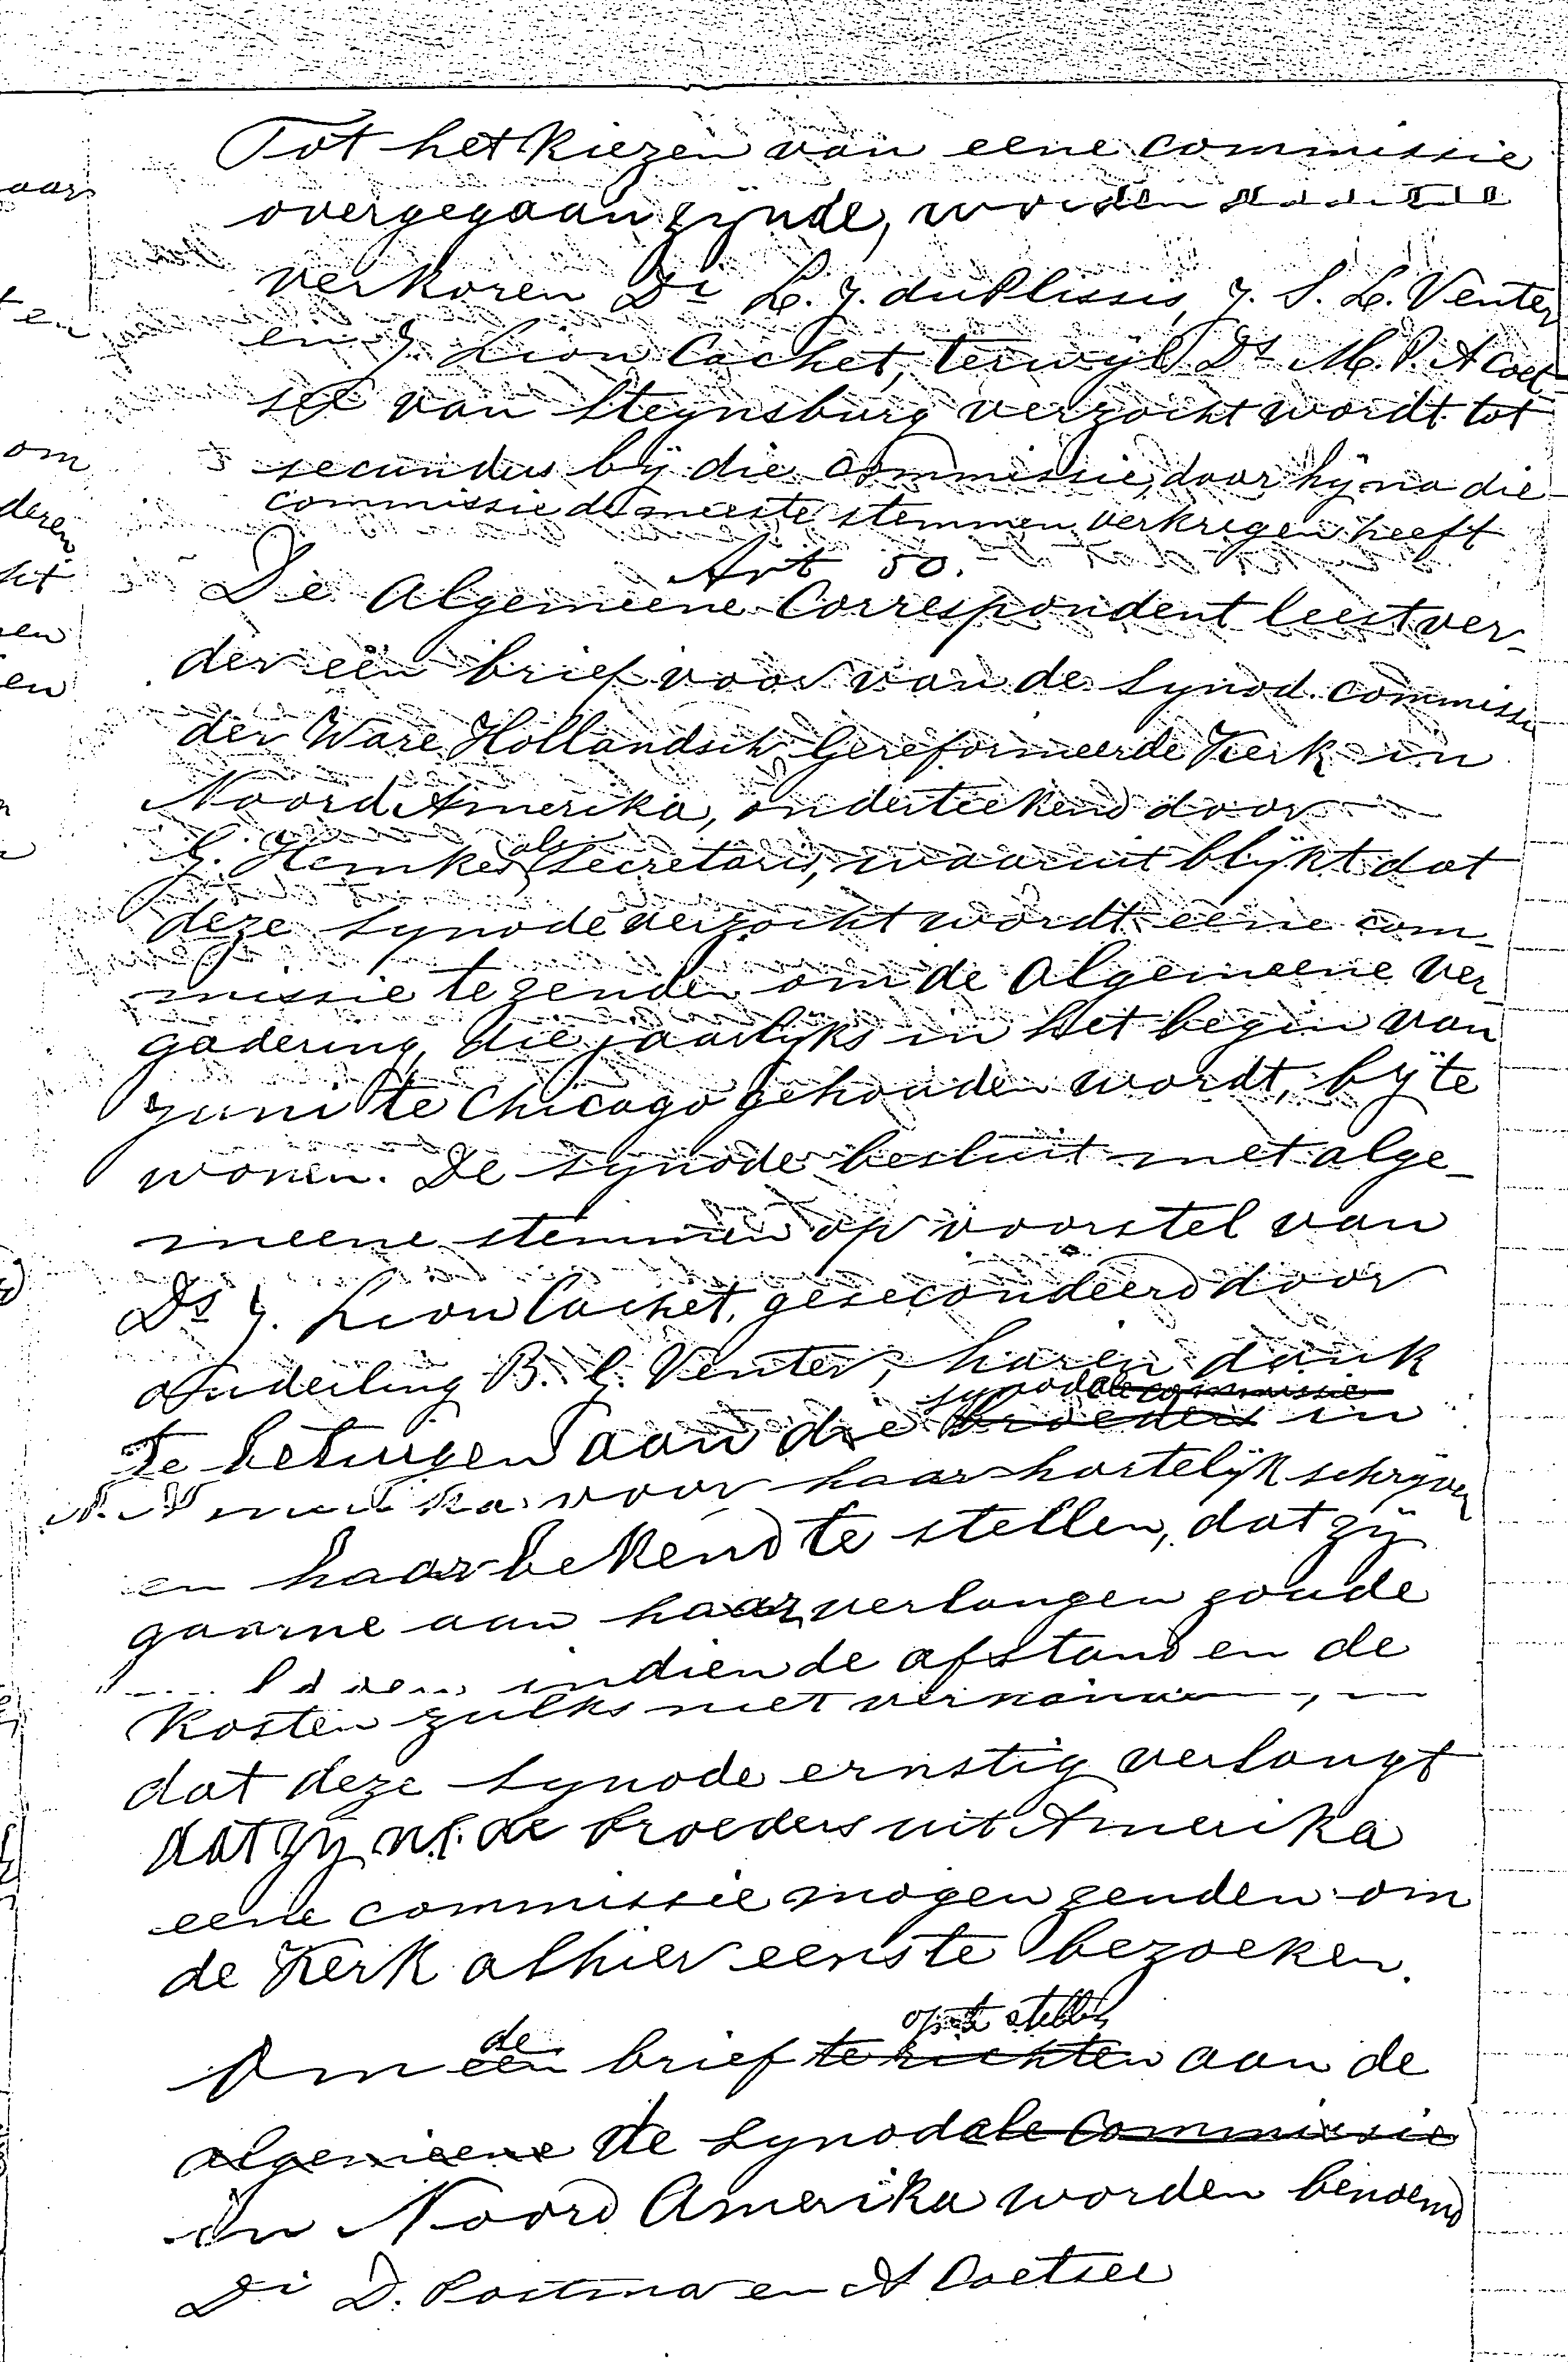 Tot het kiezen van eene commissie
overgegaan zijnde, worden
verkoren Di L. J. du Plessis, J. S. L. Venter
en J. Lion Cachet, terwijl Ds M. P. A Coet-
see van Steynsburg verzocht wordt tot
secundus bij die Commissie, daar hij na die
commissie de meeste stemmen verkregen heeft
Art 50.
De Algemeene Correspondent leest ver-
der een brief voor van de Synod. commissie
der Ware Hollandsch Gereformeerde Kerk in
Noord Amerika, onderteekend door
G. Hemkes als Secretaris, waaruit blijkt dat
deze Synode verzocht wordt eene com-
missie te zenden om de Algemeene Ver-
gadering, die jaarlijks in het begin van
Juni te Chicago gehouden wordt, bij te
wonen. De Synode besluit met alge-
meene stemmen op voorstel van
Ds J. Lion Cachet, gesecondeerd door
Ouderling B. G. Venter, haren dank
synodale commissie
te betuigen aan die broeders in
N. Amerika voor haar hartelijk schrijven
en haar bekend te stellen, dat zij
gaarne aan haar verlangen zoude
indien de afstand en de
Kosten zulks niet verhinderen
dat deze Synode ernstig verlangt
dat zij nl. de broeders uit Amerika
eene commissie mogen zenden om
de Kerk alhier eens te bezoeken.
de op te stellen
Om een brief te richten aan de
algemeene de Synodale Commissie
in Noord Amerika worden benoemd
Di D. Postma en A Coetsee